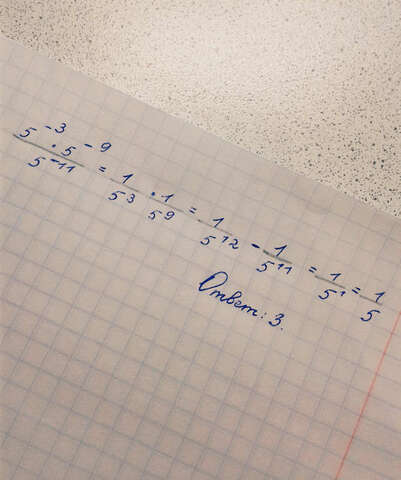 5⁻³ · 5⁻⁹ / 5⁻¹¹ = 1/5³ · 1/5⁹ = 1/5¹² - 1/5¹¹ = 1/5¹ = 1/5
Ответ: 3.